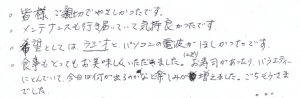 。皆様 ご親切でやさしかったです。
。メンテナンスも行き届いていて気持良かったです。
。希望としては、ラジオと、パソコンの電波がほしかったです。
。食事もとってもお美味しくいただきました。お寿司があったり、バラエティー
にとんでいて、今日は何が出るのかなと楽しみが増えました。ごちそうさま
でした。